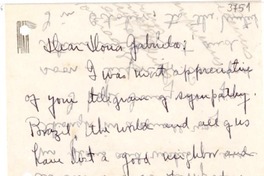 3751
Dear Dona Gabriela;
I was most appreciative
of your telegram of sympathy.
Brazil, the world and all of us
have lost a good neighbor and